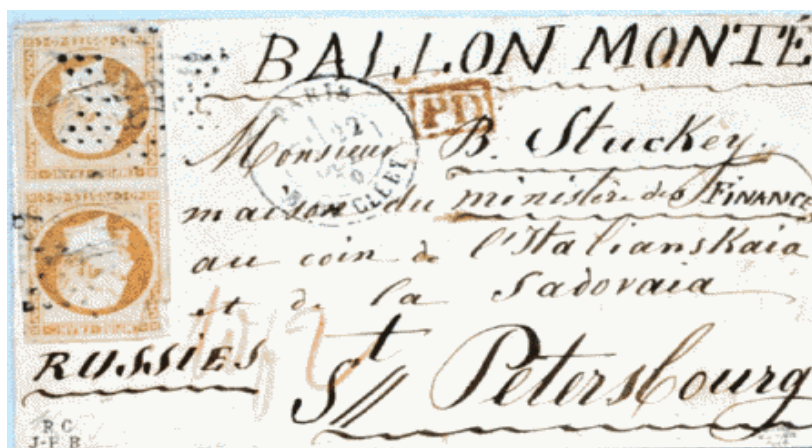 BALLON MONTÉ
PARIS
PD
22
Monsieur B. Stuckey.
maison du ministère des FINANCE
au coin de l'Italianskaia
et de la Sadovaia
RUSSIES
St Petersbourg
R C
J-F B